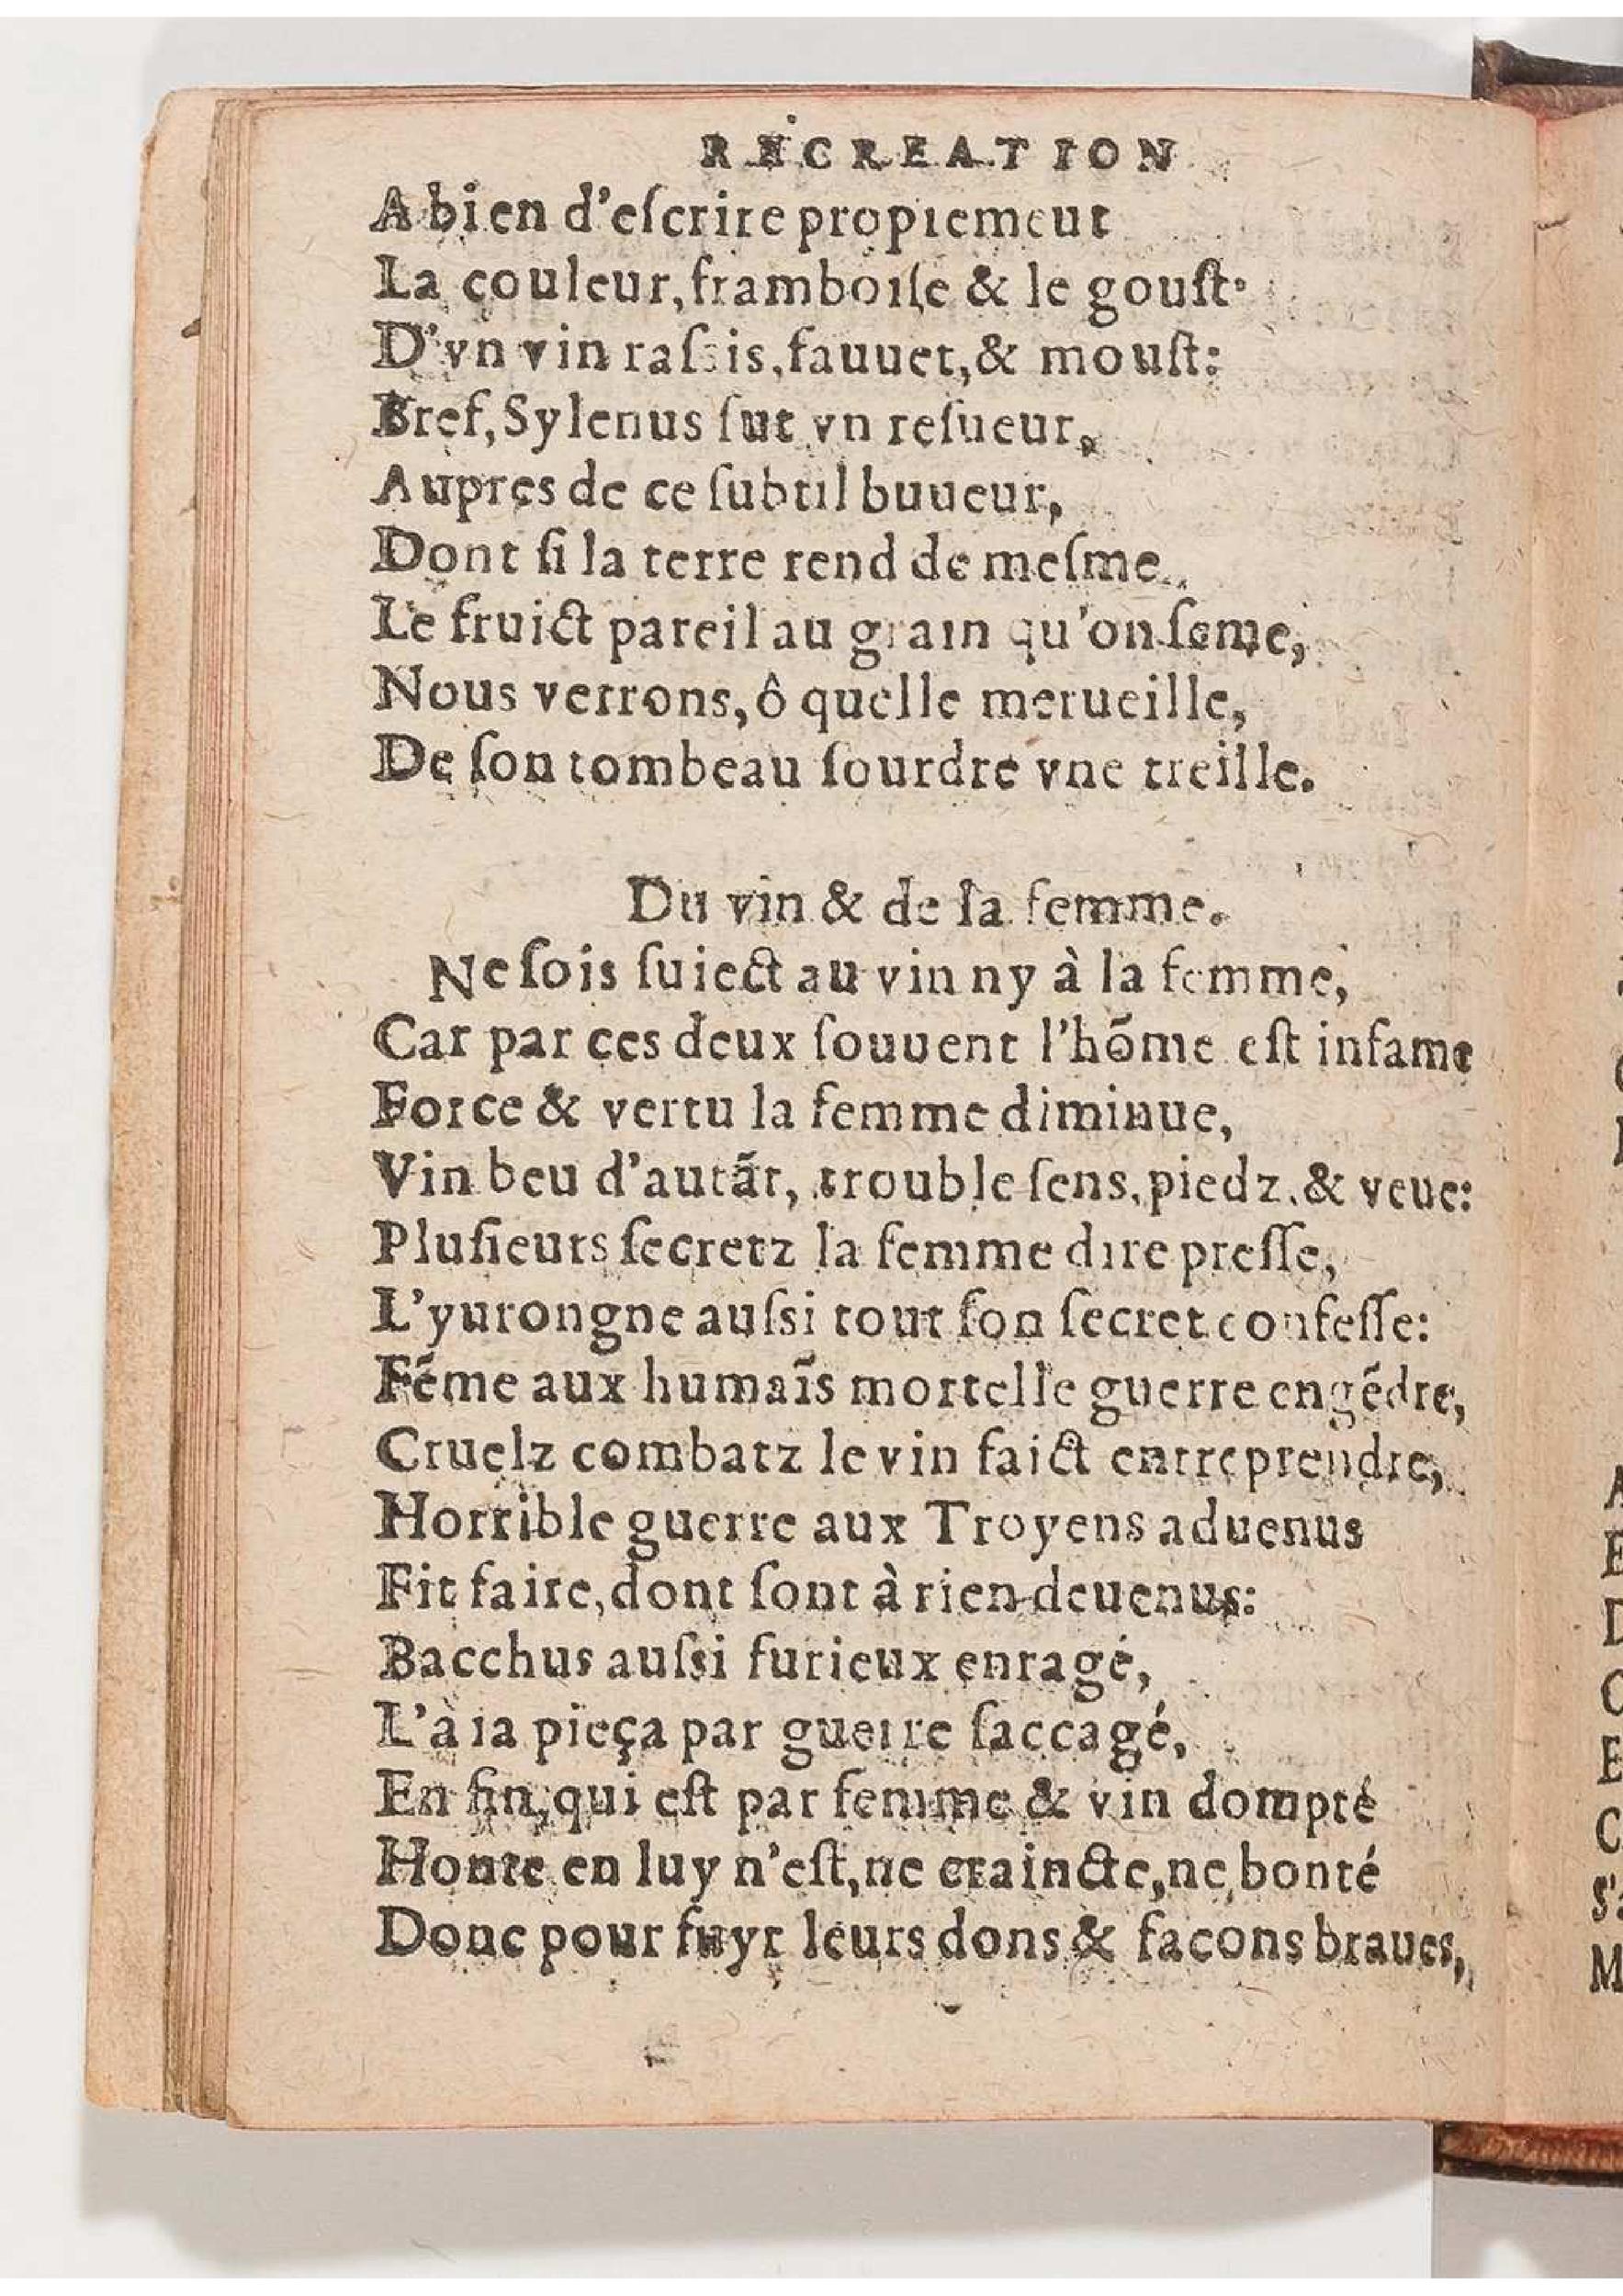 RECREATION
A bien d'eſcrire propremeut
La couleur, framboiſe & le gouſt
D'vn vin raſsis, fauuet, & mouſt:
Bref, Sylenus fut vn reſueur,
Aupres de ce ſubtil buueur,
Dont ſi la terre rend de meſme
Le fruict pareil au grain qu'on ſeme,
Nous verrons, ô quelle merueille,
De ſon tombeau ſourdre vne treille.
Du vin & de la femme.
Ne ſois ſuiect au vin ny à la femme,
Car par ces deux ſouuent l'hõme eſt infame
Force & vertu la femme diminue,
Vin beu d'autãt, trouble ſens, piedz, & veue:
Pluſieurs ſecretz la femme dire preſſe,
L'yurongne auſsi tout ſon ſecret confeſſe:
Fẽme aux humaĩs mortelle guerre engẽdre,
Cruelz combatz le vin faict entreprendre,
Horrible guerre aux Troyens aduenus
Fit faire, dont ſont à rien deuenus:
Bacchus auſsi furieux enragé,
L'à ia pieça par guerre ſaccagé,
En fin, qui eſt par femme & vin dompté
Honte en luy n'eſt, ne craincte, ne bonté
Donc pour fuyr leurs dons & facons braues,